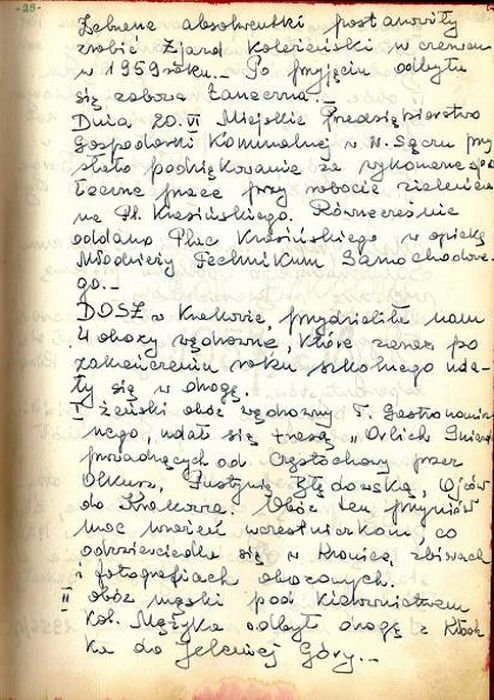 -25-
Zebrane absolwentki postanowiły
zrobić Zjazd Koleżeński w czerwcu
w 1959 roku._ Po przyjęciu odbyła
się zabawa taneczna._
Dnia 20.VI Miejskie Przedsiębiorstwo
Gospodarki Komunalnej w N. Sączu prze
słało podziękowanie za wykonane spo
łeczne prace przy robocie zieleńca
na Pl. Krasińskiego. Równocześnie
oddano Plac Krasińskiego w opiekę
Młodzieży Technikum Samochodowe-
go._
DOSZ w Krakowie, przydzieliła nam
4 obozy wędrowne, które zaraz po
zakończeniu roku szkolnego uda-
ły się w drogę.
I żeński obóz wędrowny T. Gastronomicz
nego, udał się trasą „Orlich Gniazd
prowadzących od Częstochowy przez
Olkusz, Pustynię Błędowską, Ojców
do Krakowa. Obóz ten przyniósł
moc wrażeń uczestniczkom, co
odzwierciedla się w Kronice, zbiorach
i fotografiach obozowych.
II obóz męski pod Kierownictwem
Kol. Mężyka odbył drogę z Kłodz
ka do Jeleniej Góry._